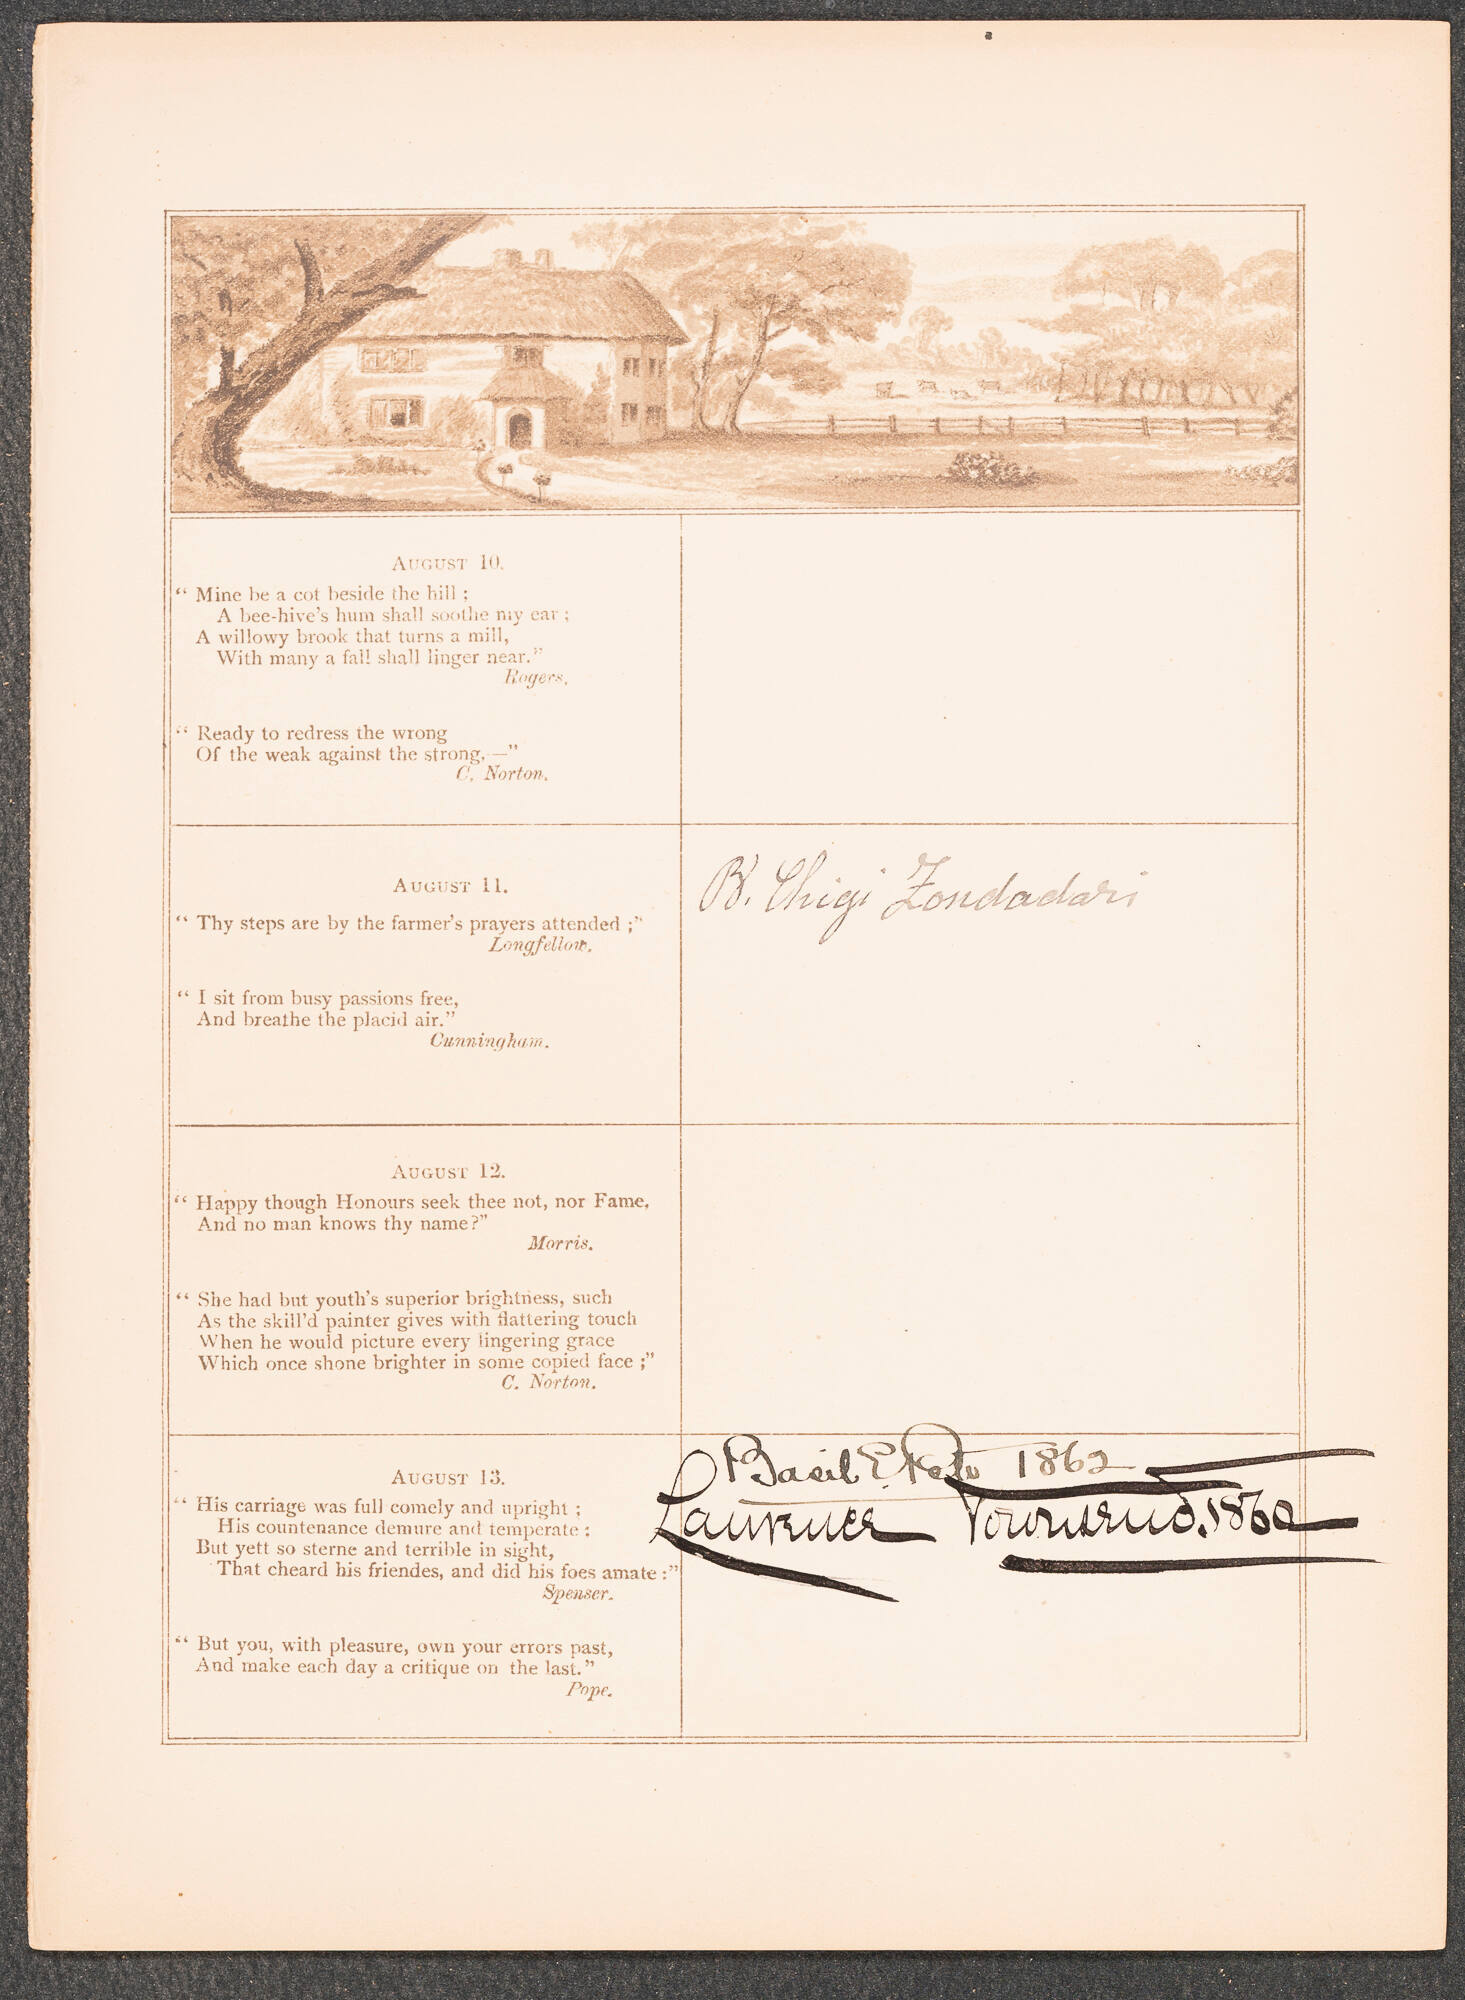 AUGUST 10.
“ Mine be a cot beside the hill ;
A bee-hive's hum shall soothe my ear ;
A willowy brook that turns a mill,
With many a fall shall linger near.”
Rogers.
“ Ready to redress the wrong
Of the weak against the strong,—”
C. Norton.
AUGUST 11.
“ Thy steps are by the farmer's prayers attended ;”
Longfellow.
“ I sit from busy passions free,
And breathe the placid air.”
Cunningham.
B. Chigi Zondadari
AUGUST 12.
“ Happy though Honours seek thee not, nor Fame,
And no man knows thy name?”
Morris.
“ She had but youth's superior brightness, such
As the skill'd painter gives with flattering touch
When he would picture every lingering grace
Which once shone brighter in some copied face ;”
C. Norton.
AUGUST 13.
“ His carriage was full comely and upright ;
His countenance demure and temperate ;
But yett so sterne and terrible in sight,
That cheard his friendes, and did his foes amate :”
Spenser.
“ But you, with pleasure, own your errors past,
And make each day a critique on the last.”
Pope.
Basil E. Peto 1862
Laurence Townsend. 1860